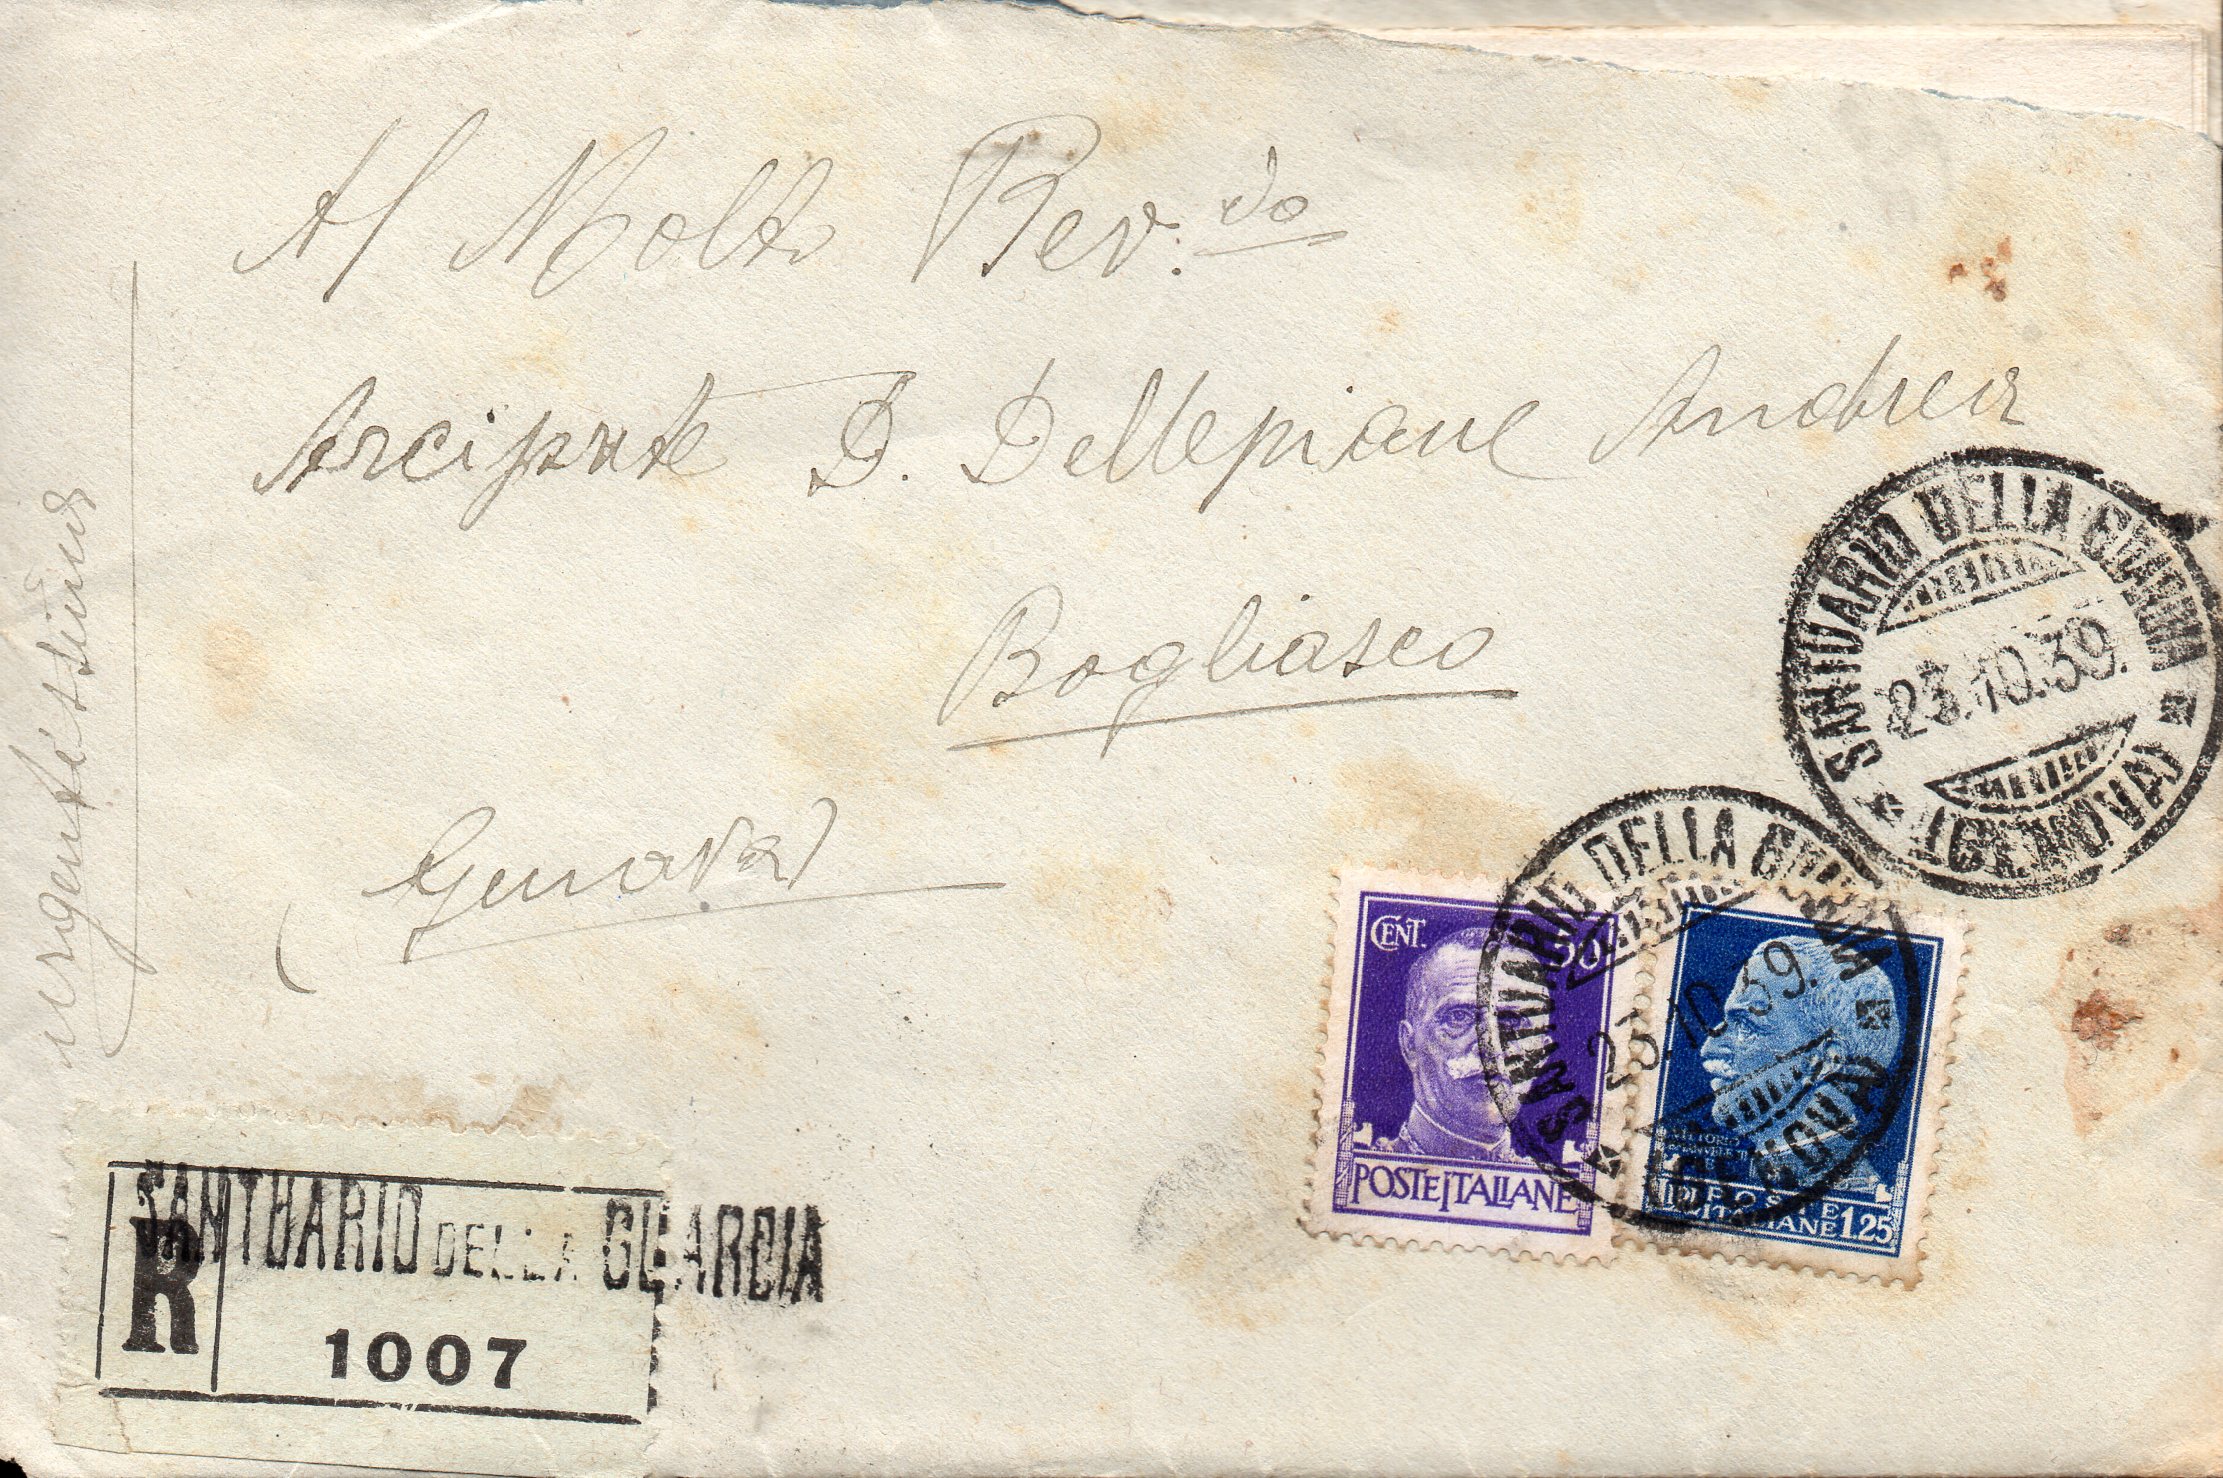 Al Molto Rev.do
Arciprete D. Dellepiane Andrea
Bogliasco
(Genova)
urgentissima
SANTUARIO DELLA GUARDIA
23.10.39.
(GENOVA)
SANTUARIO DELLA GUARDIA
23.10.39.
(GENOVA)
CENT. 50
POSTE ITALIANE
VITTORIO
EMANVELE III
POSTE
ITALIANE 1.25
SANTUARIO DELLA GUARDIA
R
1007